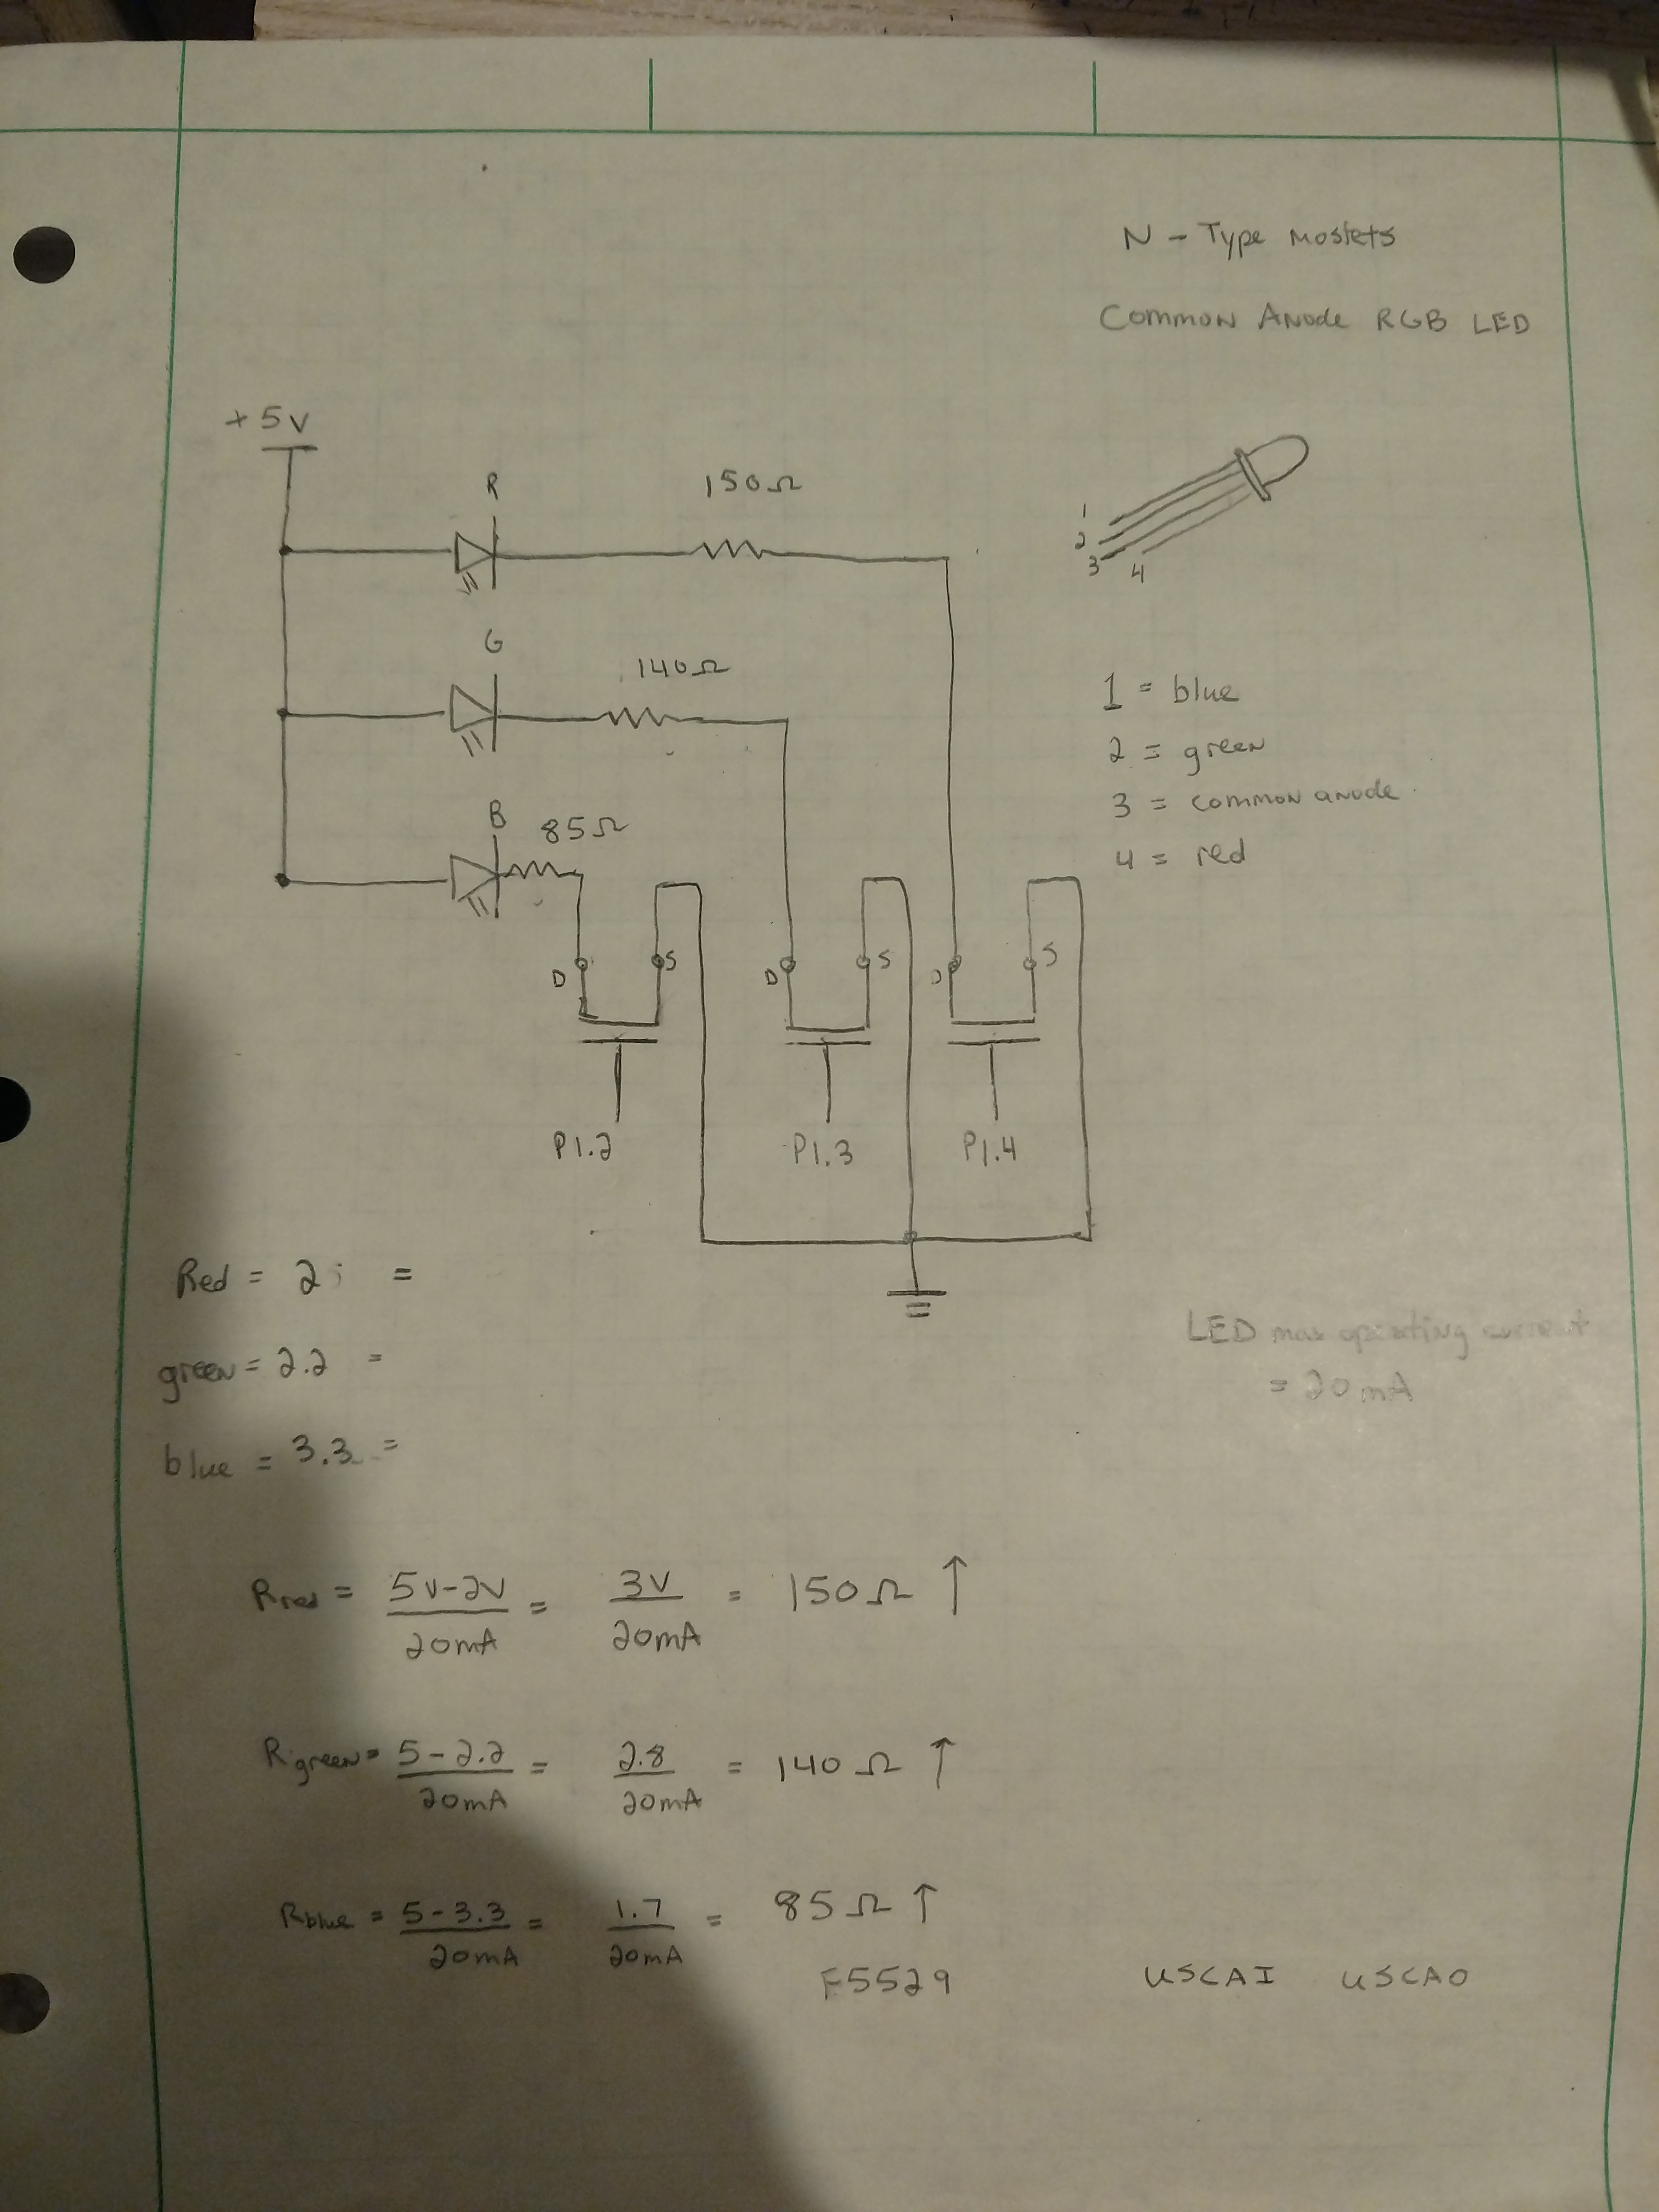 N - Type mosfets
Common Anode RGB LED
+5V
R
150Ω
G
140Ω
B
85Ω
1
2
3
4
1 = blue
2 = green
3 = common anode
4 = red
D
S
D
S
D
S
P1.2
P1.3
P1.4
Red = 2 =
green = 2.2 =
blue = 3.3 =
LED max operating current
= 20mA
Rred = 5V-2V / 20mA = 3V / 20mA = 150Ω ↑
Rgreen = 5-2.2 / 20mA = 2.8 / 20mA = 140Ω ↑
Rblue = 5-3.3 / 20mA = 1.7 / 20mA = 85Ω ↑
F5529
USCAI
USCAO